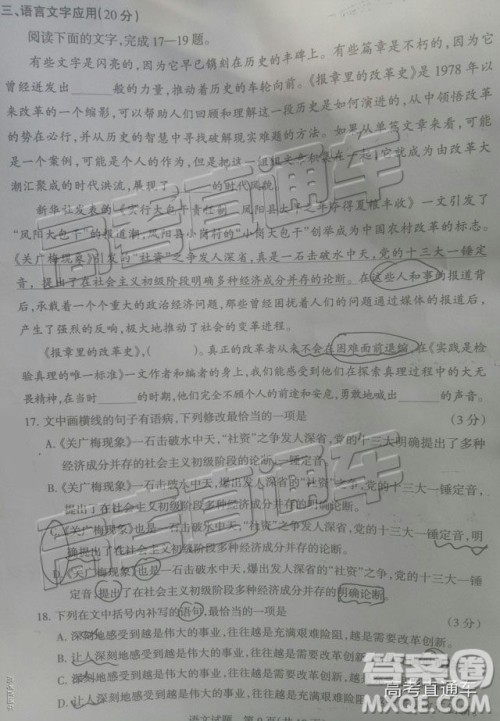 三、语言文字应用(20分)
阅读下面的文字,完成17—19题。
有些文字是闪亮的,因为它早已镌刻在历史的丰碑上;有些篇章是不朽的,因为它
曾经迸发出______般的力量,推动着历史的车轮向前。《报章里的改革史》是1978年以
来改革的一个缩影,可以帮助人们回顾和理解这一段历史是如何演进的,从中领悟改革
的势在必行,并从历史的智慧中寻找破解现实难题的方法。如果从单篇文章来看,可能
是一个案例,可能是个人的一个认识,但是把这一组组文章积聚在一起,它就成为由改革大
潮汇聚成的时代洪流,展现了______的时代风貌。
新华社发表的《实行大包干责任制 凤阳县大旱之年
夏粮丰收》一文引发了
“凤阳大包干”的报道潮,凤阳县小岗村的“小岗大包干”创举成为中国农村改革的标志。
《关广梅现象》引发的“社资”之争发人深省,真是一石击破水中天,党的十三大一锤定
音,提出了在社会主义初级阶段明确多种经济成分并存的论断。在这些人和事的报道背
后,承载着一个个重大的政治经济问题,那些曾经困扰着人们的问题通过媒体的报道后,
产生了强烈的反响,极大地推动了社会的变革进程。
《报章里的改革史》,(   )。真正的改革者从来不会在困难面前退缩,在《实践是检
验真理的唯一标准》一文作者和编者的身上,我们能感受到他们在探索真理过程中的无
畏精神,在当时
的时期,他们完全不顾个人的前途和安危,勇敢地喊出______的声音。
17. 文中画横线的句子有语病,下列修改最恰当的一项是 (3分)
A.《关广梅现象》一石击破水中天,“社资”之争发人深省,党的十三大明确提出了多种
经济成分并存的社会主义初级阶段的论断。
B.《关广梅现象》一石击破水中天,发人深省的“社资”之争,党的十三大一锤定音,
提出了在社会主义初级阶段多种经济成分并存的论断。
C.《关广梅现象》也是一石击破水中天,“社资”之争发人深省,党的十三大一锤定音,明
确提出了在社会主义初级阶段多种经济成分并存的论断。
D.《关广梅现象》也是一石击破水中天,发人深省的“社资”之争,党的十三大一锤
定音,提出了在社会主义初级阶段多种经济成分并存的明确论断。
18. 下列在文中括号内补写的语句,最恰当的一项是 (3分)
A. 深刻地感受到越是伟大的事业,往往越是充满艰难险阻,越是需要改革创新。
B. 让人深刻地感受到越是伟大的事业,往往越是充满艰难险阻,越需要改革创新。
C. 深刻地感受到越是伟大的事业,往往越是充满艰难险阻,
D. 让人深刻地感受到越是伟大的事业,往往越是充满艰难
语文试题
高考直通车
答案圈
高考直通车